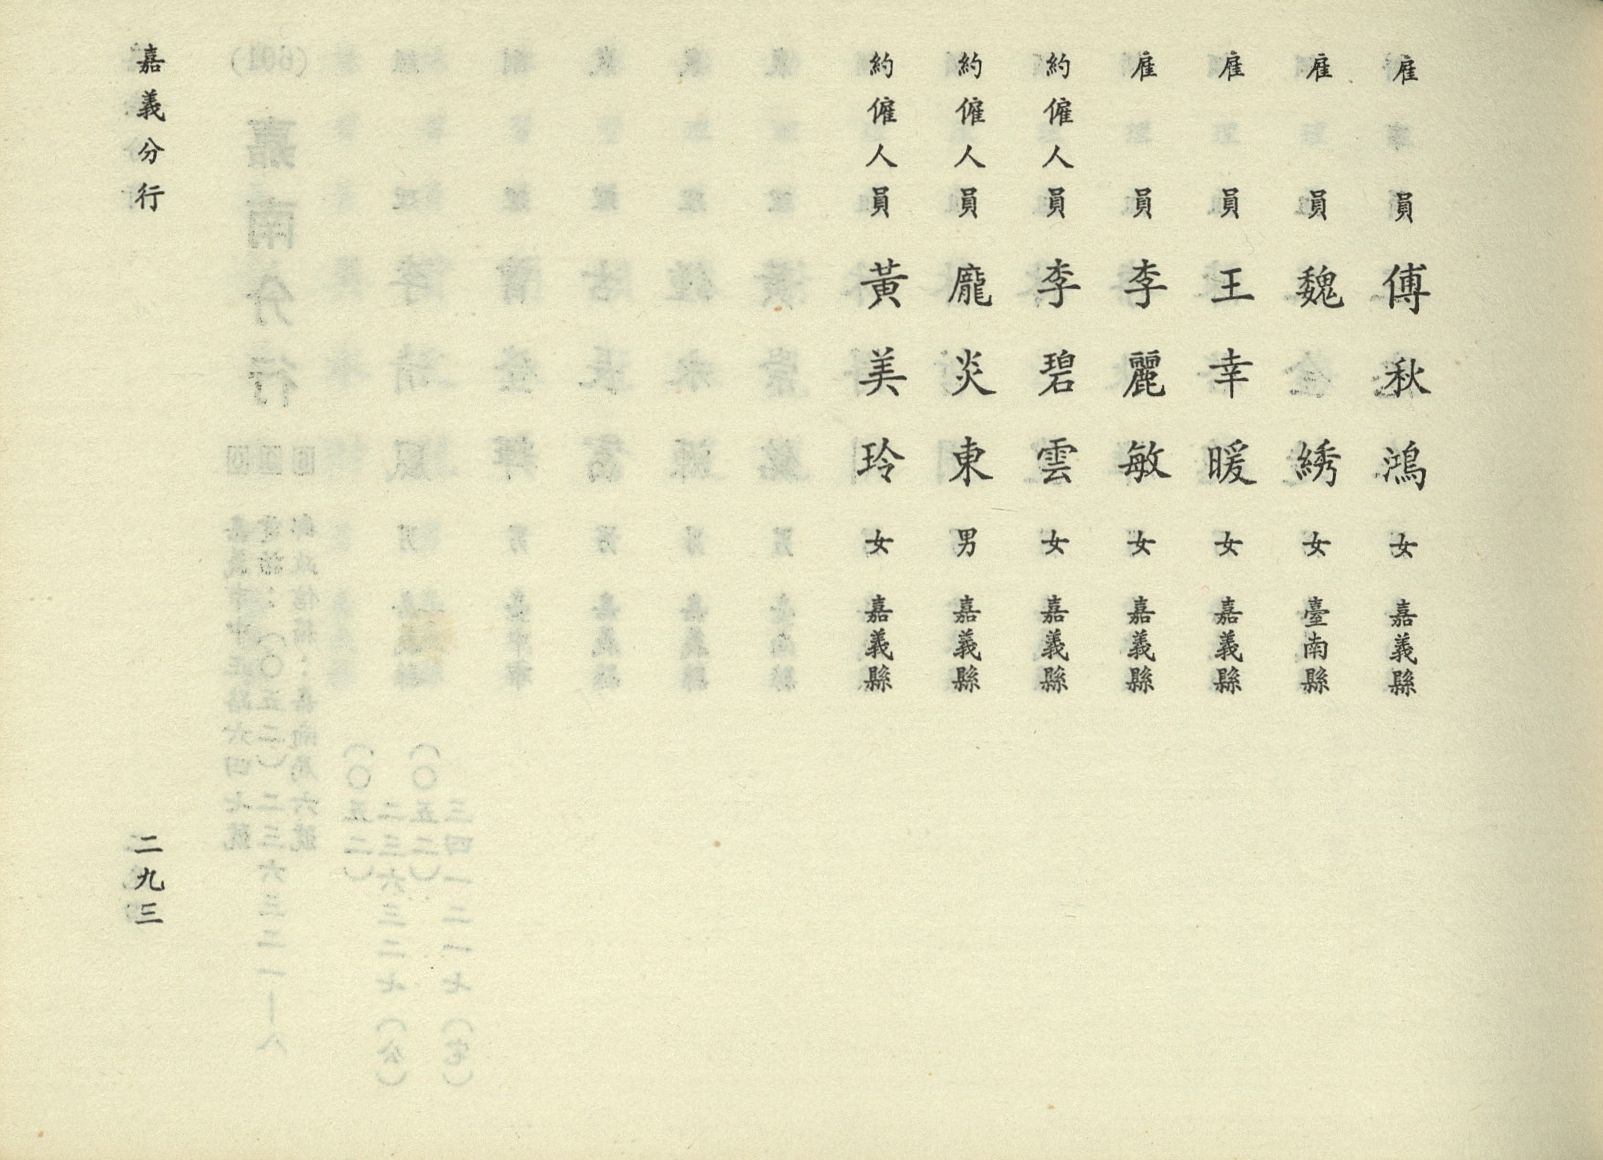 雇員 傅秋鴻 女 嘉義縣
雇員 魏綉 女 臺南縣
雇員 王幸暖 女 嘉義縣
雇員 李麗敏 女 嘉義縣
約僱人員 李碧雲 女 嘉義縣
約僱人員 龐炎東 男 嘉義縣
約僱人員 黃美玲 女 嘉義縣
嘉義分行
二九三